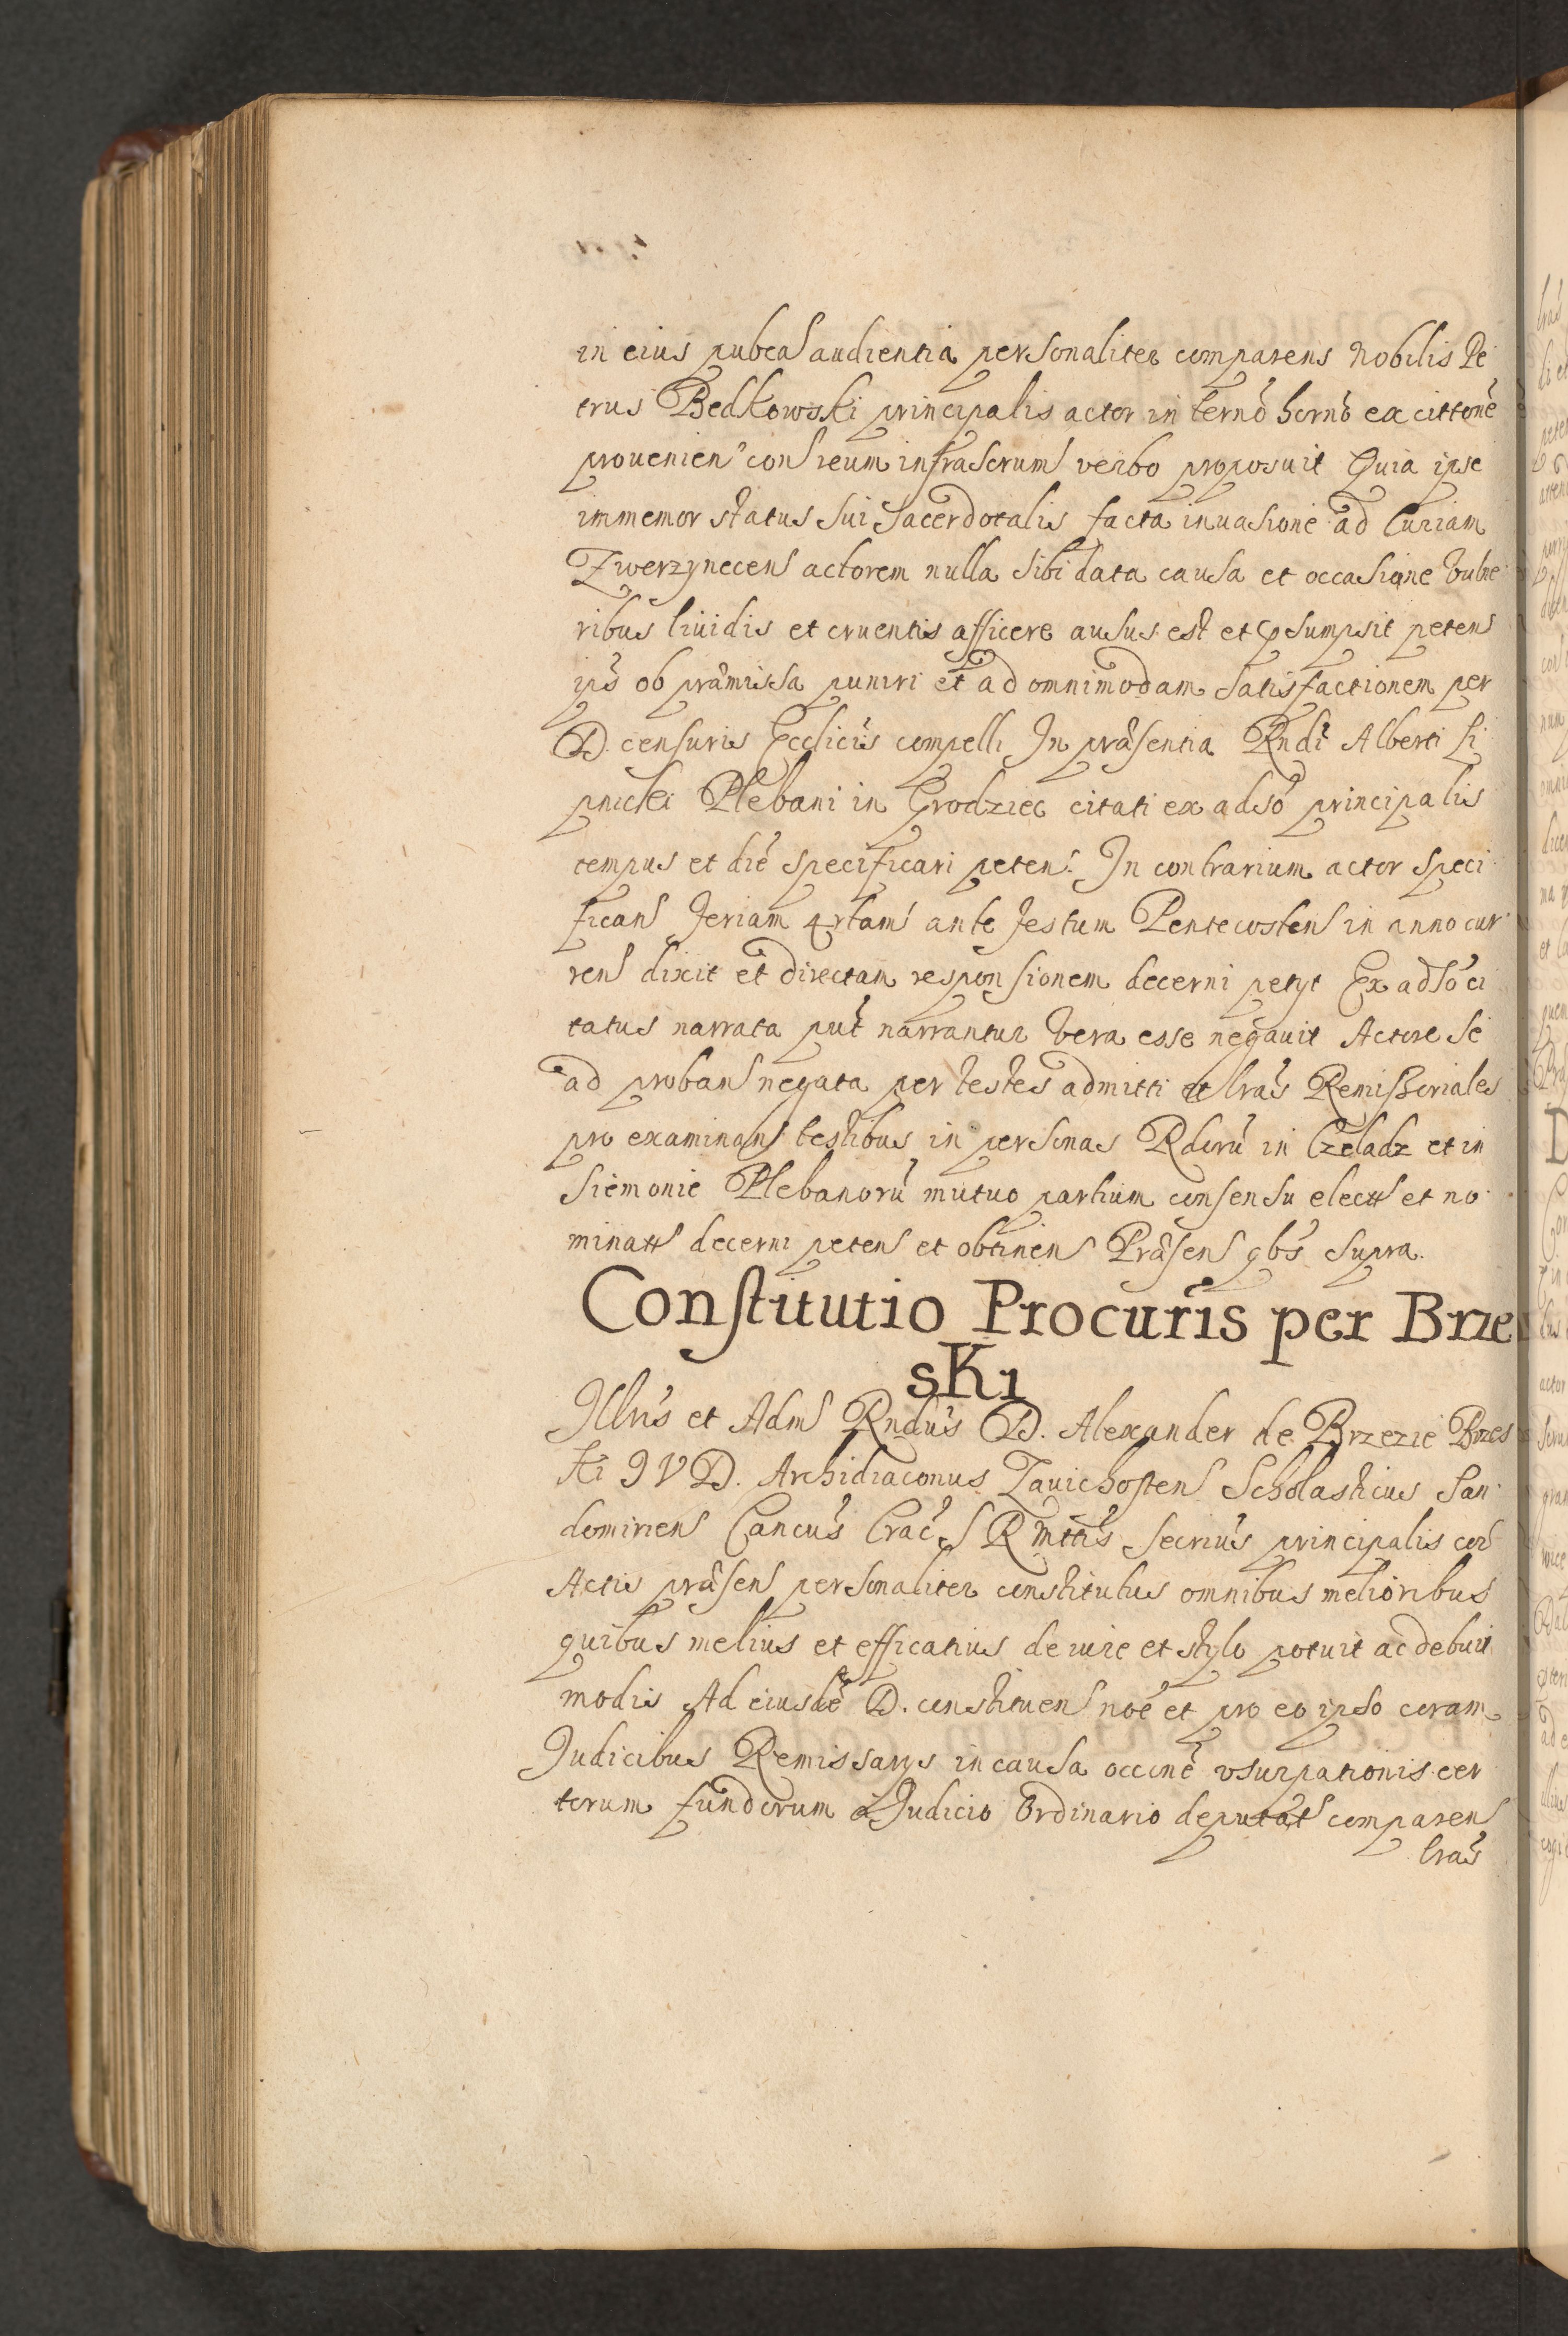 in eius pubca audientia personaliter comparens nobilis Pe
trus Bedkowski principalis actor in termo horno ex cittone
prouenien con reum infrascrum verbo proposuit Quia ipse
immemor status sui Sacerdotalis facta inuasione ad Curiam
Zwerzynecen actorem nulla sibi data causa et occasione vulne
ribus liuidis et cruentis afficere ausus est et psumpsit peten
ips ob præmissa puniri et ad omnimodam satisfactionem per
D. censuris Ecclicis compelli In præsentia Rndi Alberti Li
pnicki Plebani in Grodziec citati ex adso principalis
tempus et die specificari peten. In contrarium actor speci
fican feriam 4rtam ante festum Pentecosten in anno cur
ren dixit et directam responsionem decerni petyt Ex adso ci
tatus narrata put narrantur vera esse negauit Actore se
ad proban negata per testes admitti et lras Remissoriales
pro examinan testibus in personas Rdoru in Czeladz et in
Siemonie Plebanoru mutuo partium consensu elect et no
minatt decerni peten et obtinen Præsen qbs supra.
Constitutio Procuris per Brze
ski
Illris et Adm Rndus D. Alexander de Brzezie Brzes
ki IVD. Archidiaconus Zauichosten Scholasticus San
domirien Cancus Crac S R Mttis Secrius principalis cor
Actis præsen personaliter constitutus omnibus melioribus
quibus melius et efficatius de iure et stylo potuit ac debuit
modis Ad eiusde D. constituen noe et pro eo ipso coram
Judicibus Remissarys in causa occone vsurpationis cer
torum fundorum a Judicio Ordinario deputat comparen
lras